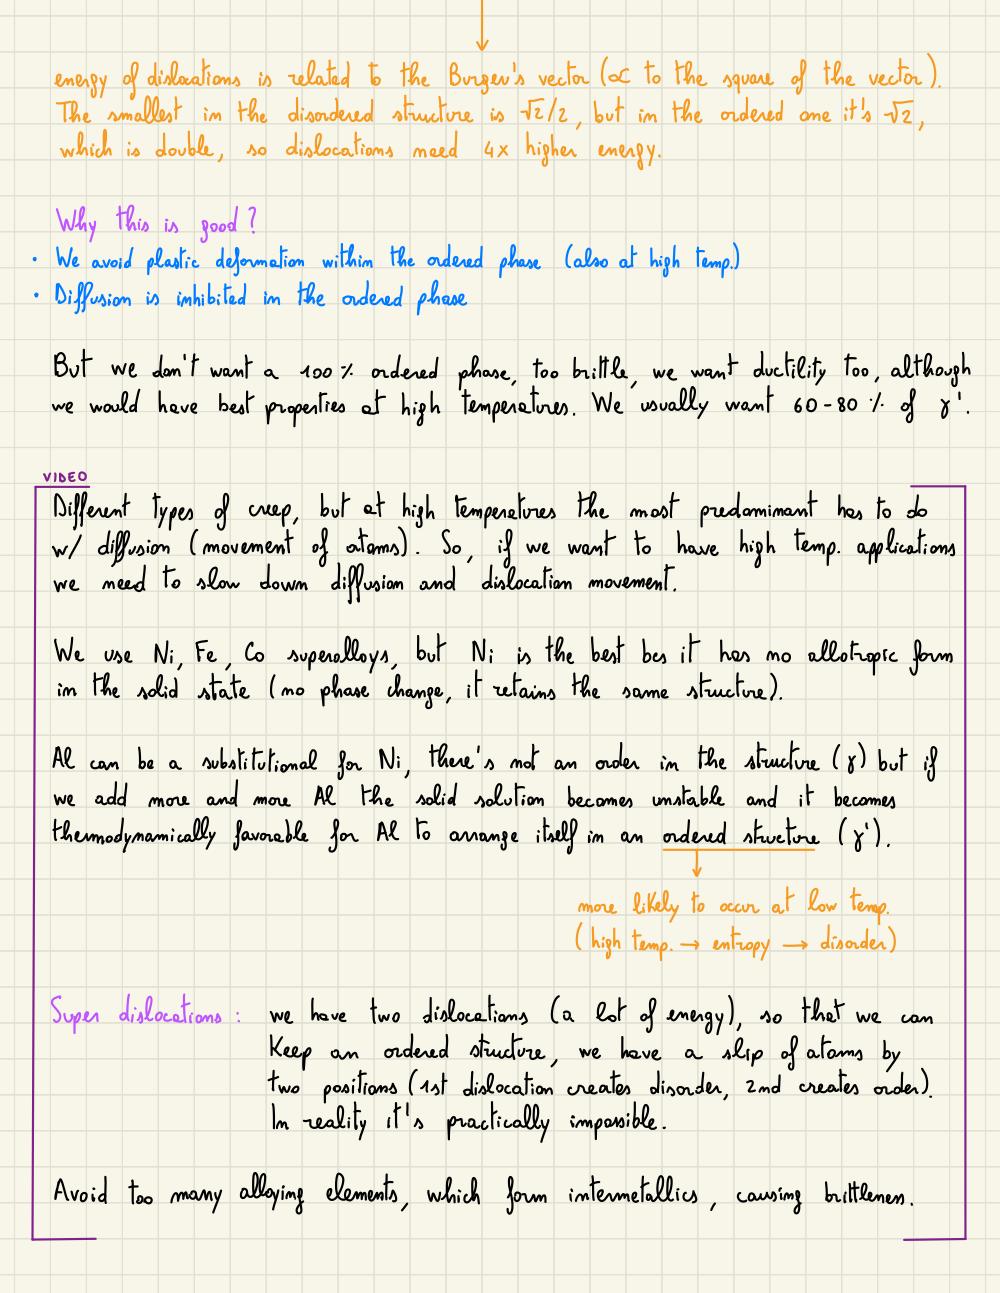 energy of dislocations is related to the Burger's vector (∝ to the square of the vector).
The smallest in the disordered structure is √2/2, but in the ordered one it's √2,
which is double, so dislocations need 4x higher energy.
Why this is good?
• We avoid plastic deformation within the ordered phase (also at high temp.)
• Diffusion is inhibited in the ordered phase
But we don't want a 100% ordered phase, too brittle, we want ductility too, although
we would have best properties at high temperatures. We usually want 60-80 % of γ'.
VIDEO
Different types of creep, but at high temperatures the most predominant has to do
w/ diffusion (movement of atoms). So, if we want to have high temp. applications
we need to slow down diffusion and dislocation movement.
We use Ni, Fe, Co superalloys, but Ni is the best bcs it has no allotropic form
in the solid state (no phase change, it retains the same structure).
Al can be a substitutional for Ni, there's not an order in the structure (γ) but if
we add more and more Al the solid solution becomes unstable and it becomes
thermodynamically favorable for Al to arrange itself in an ordered structure (γ').
more likely to occur at low temp.
(high temp. → entropy → disorder)
Super dislocations: we have two dislocations (a lot of energy), so that we can
Keep an ordered structure, we have a slip of atoms by
two positions (1st dislocation creates disorder, 2nd creates order).
In reality it's practically impossible.
Avoid too many alloying elements, which form intermetallics, causing brittleness.